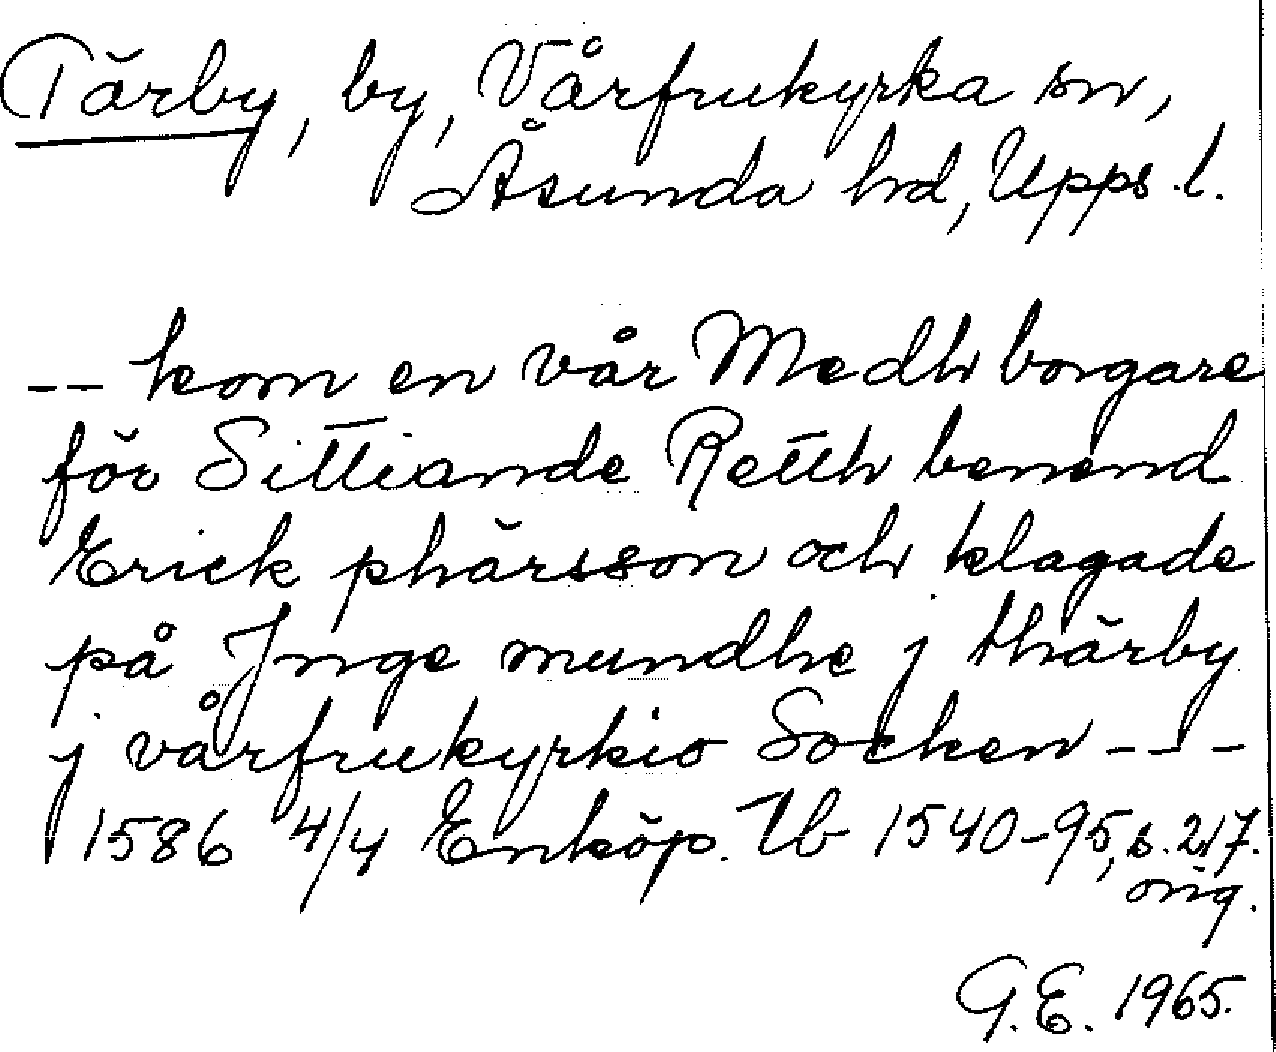 Tärby, by, Vårfrukyrka sn,
Åsunda hd, Upps. l.
-- kom en vår Medh borgare
för Sittiande Retth benend
Erick phärsson och klagade
på Jnge mundhe j thärby
j vårfrukyrkio Socken ---
1586 4/4 Enköp. Tb 1540-95, s. 217.
orig.
G.E. 1965.